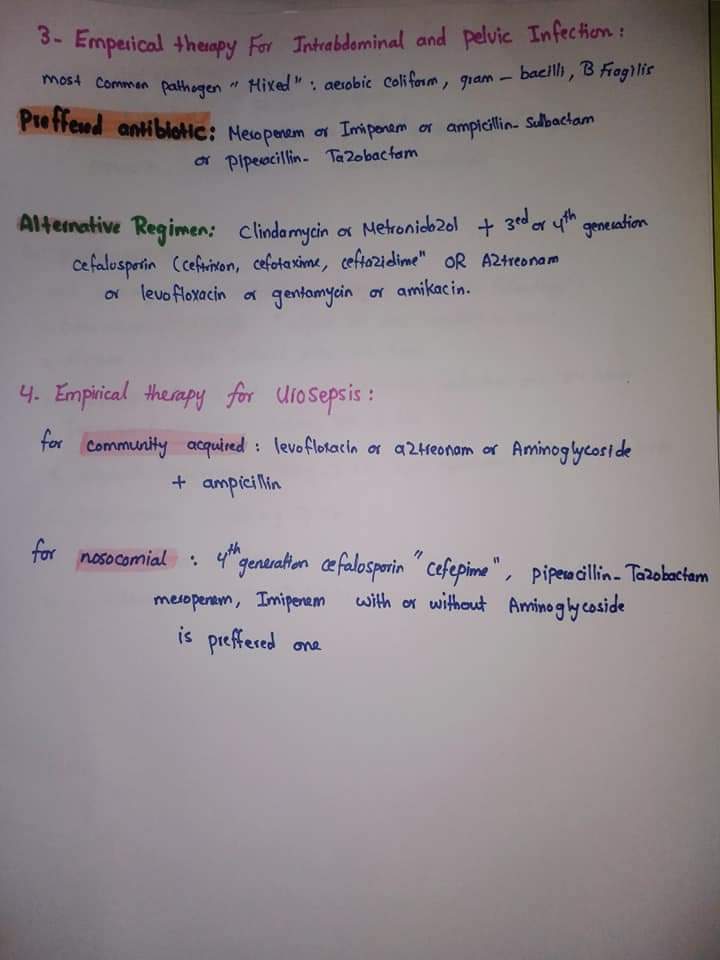 3- Emperical therapy For Intrabdominal and pelvic Infection :
most common pathogen " Mixed" : aerobic coliform, gram - bacilli, B Fragilis
Preffered antibiotic: Meropenem or Imipenem or ampicillin- Sulbactam
or piperacillin- Tazobactam
Alternative Regimen: Clindamycin or Metronidazol + 3ed or 4th generation
cefalosporin (ceftrixon, cefotaxime, ceftazidime" OR Aztreonam
or levofloxacin or gentamycin or amikacin.
4. Empirical therapy for urosepsis :
for community acquired : levofloxacin or aztreonam or Aminoglycoside
+ ampicillin
for nosocomial : 4th generation cefalosporin "cefepime", piperacillin- Tazobactam
meropenem, Imipenem with or without Aminoglycoside
is preffered one